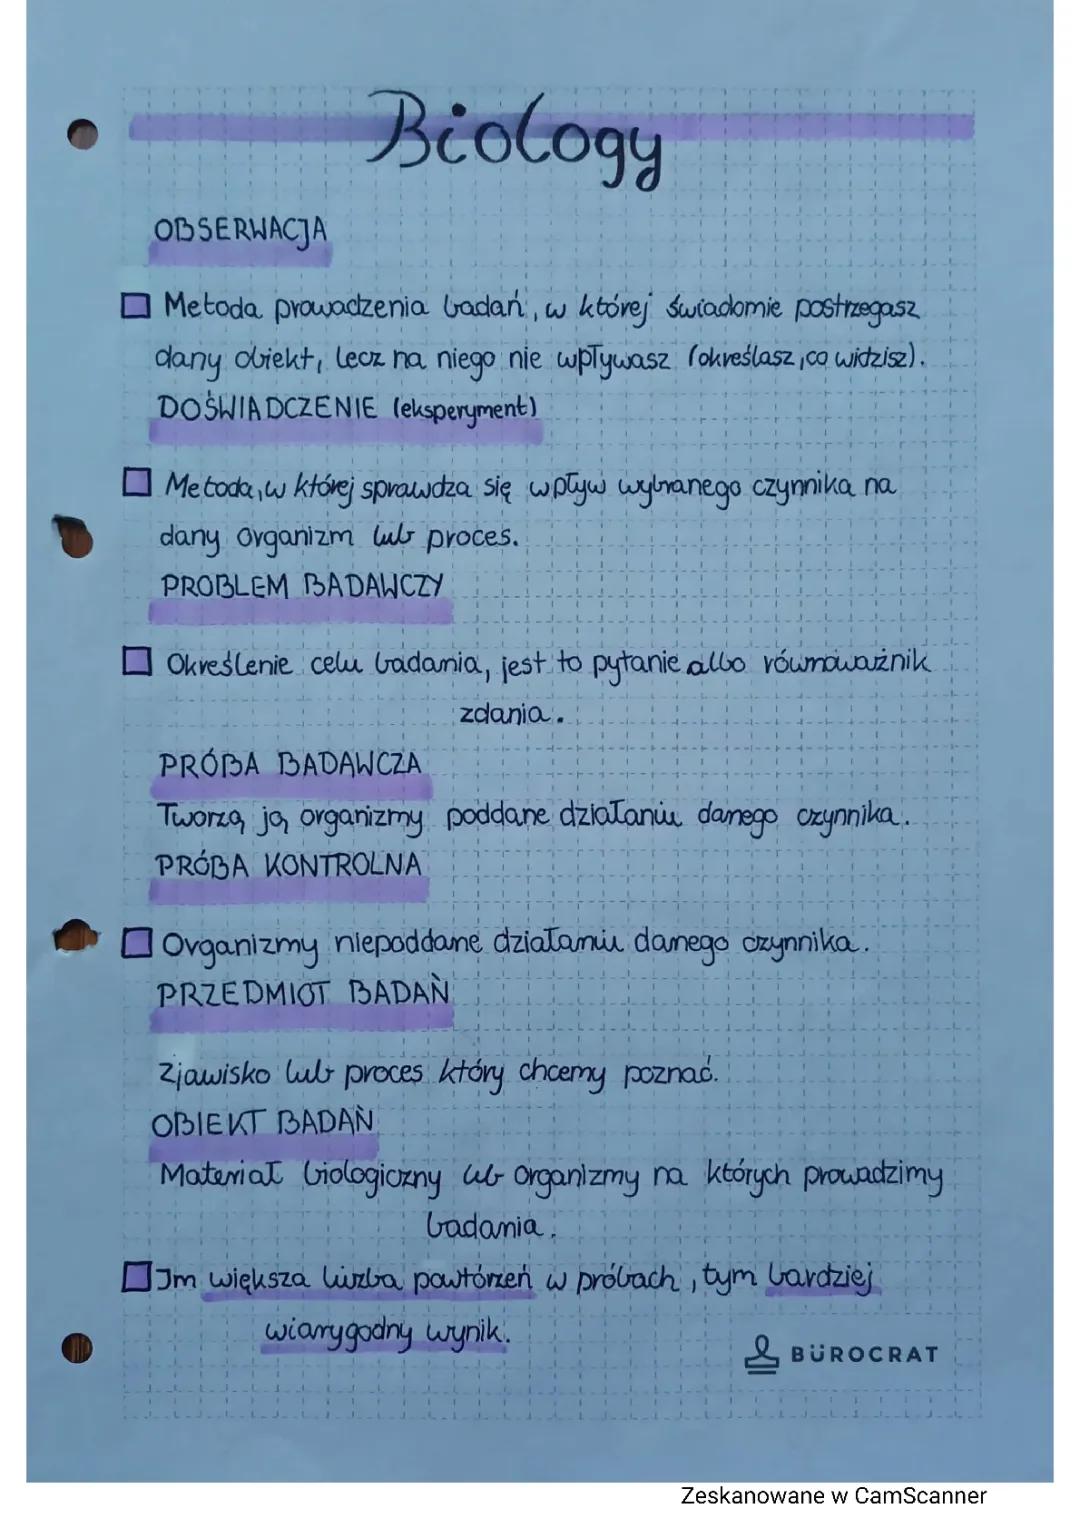 Biology
OBSERWACJA
Metoda prowadzenia badań, w której świadomie postrzegasz
dany obiekt, lecz na niego nie wpływasz (określasz, co widzisz).
DOŚWIADCZENIE (eksperyment)
Metoda, w której sprawdza się wpływ wybranego czynnika na
dany organizm lub proces.
PROBLEM BADAWCZY
Określenie celu badania, jest to pytanie albo równoważnik
zdania.
PRÓBA BADAWCZA
Tworzą ją organizmy poddane działaniu danego czynnika.
PRÓBA KONTROLNA
Organizmy niepoddane działaniu danego czynnika.
PRZEDMIOT BADAŃ
Zjawisko lub proces który chcemy poznać.
OBIEKT BADAŃ
Materiał biologiczny lub organizmy na których prowadzimy
badania.
Im większa liczba powtórzeń w próbach, tym bardziej
wiarygodny wynik.
BÜROCRAT
Zeskanowane w CamScanner